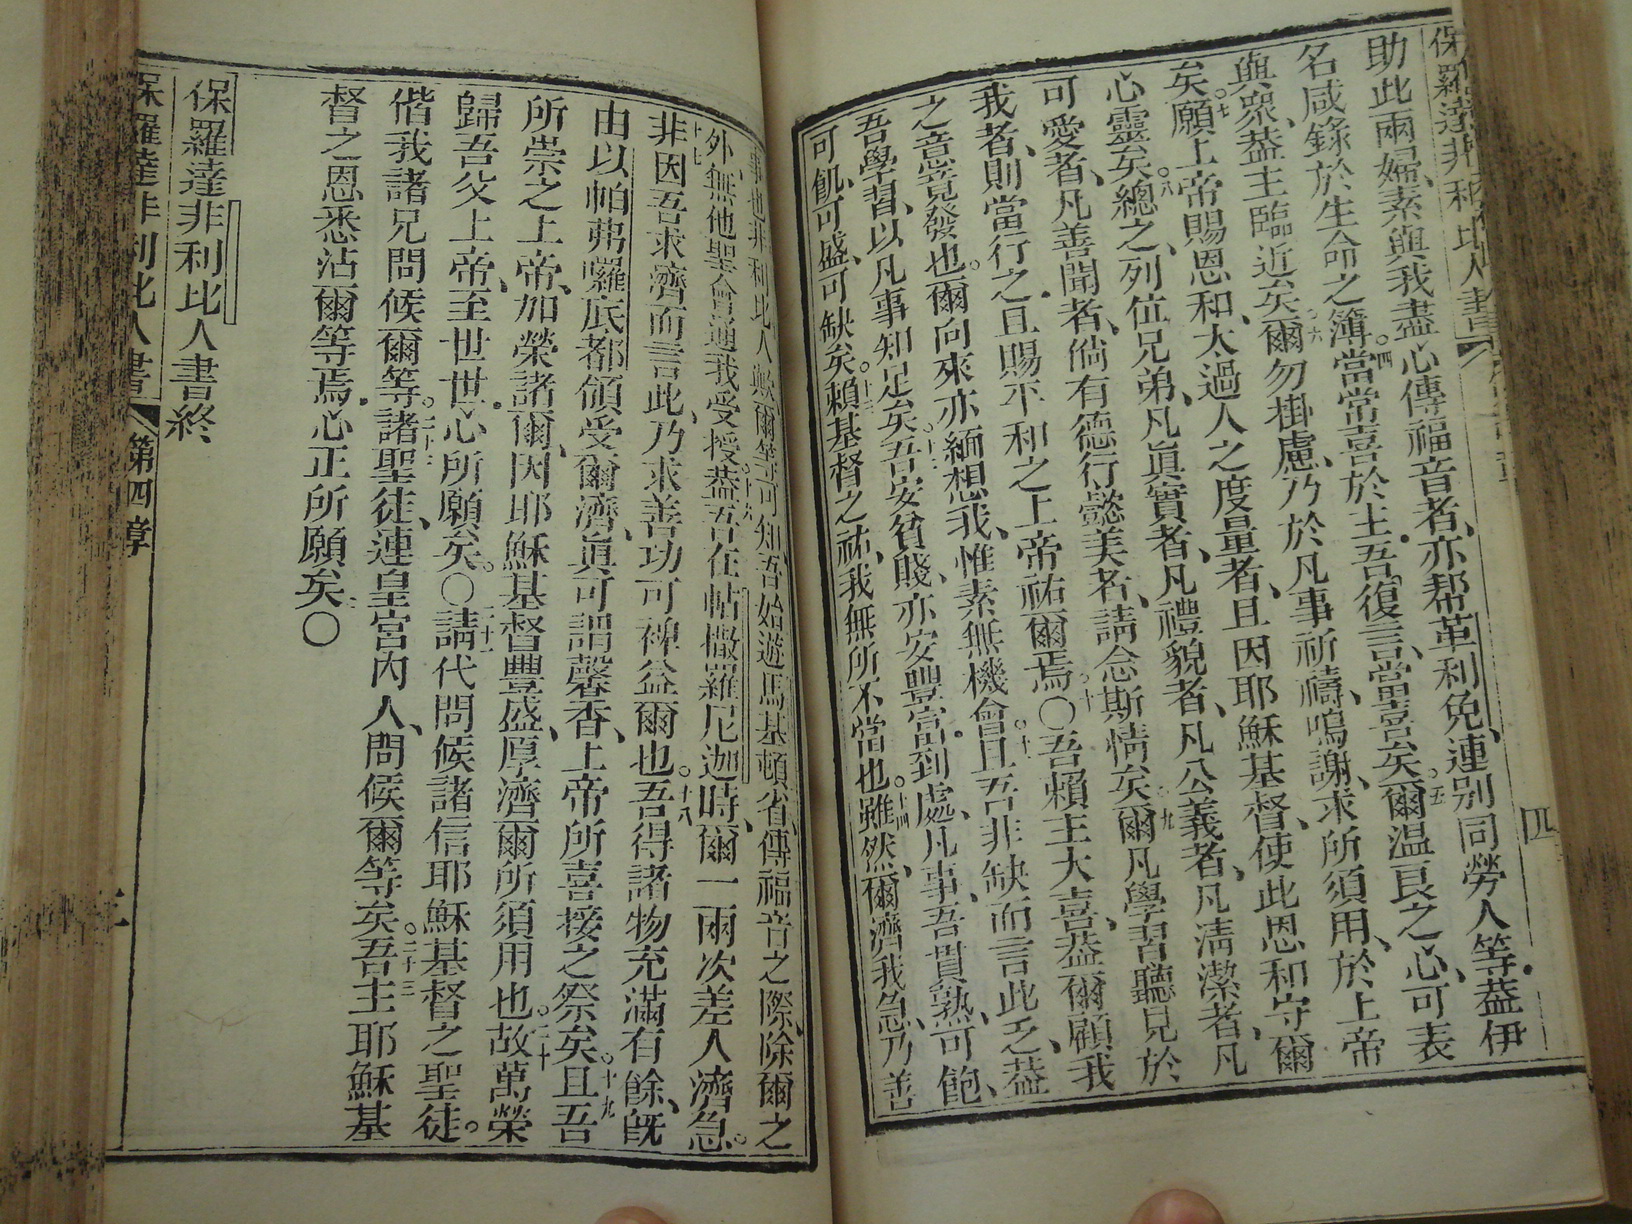 保羅達非利比人書
四
助此兩婦、素與我盡心傳福音者、亦帮革利免、連別同勞人等、葢伊
名咸錄於生命之簿。四當常喜於主、吾復言、當喜矣。五爾温良之心、可表
與衆、葢主臨近矣。六爾勿掛慮、乃於凡事祈禱、鳴謝、求所須用、於上帝
矣。七願上帝賜恩和、太過人之度量者、且因耶穌基督、使此恩和守爾
心靈矣。八總之、列位兄弟、凡眞實者、凡禮貌者、凡公義者、凡清潔者、凡
可愛者、凡善聞者、倘有德行懿美者、請念斯情矣。九爾凡學習聽見於
我者、則當行之、且賜平和之上帝祐爾焉。十〇吾賴主大喜、葢爾顧我
之音嘗發也。爾向來亦緬想我、惟素無機會。十一且吾非缺而言此乏、葢
吾學習、以凡事知足矣。十二吾安貧賤、亦安豐富、到處、凡事、吾貫熟、可飽、
可飢、可盛、可缺矣。十三賴基督之祐、我無所不當也。十四雖然、爾濟我急、乃善
事也。非利比人歟、爾等可知、吾始遊馬基頓省、傳福音之際、除爾之
外、無他聖會通我受授。十六葢吾在帖撒羅尼迦時、爾一兩次差人濟急。
十七非因吾求濟而言此、乃求善功可裨益爾也。十八吾得諸物充滿有餘、旣
由以帕弗囉底都領受爾濟、眞可謂馨香、上帝所喜接之祭矣。十九且吾
所崇之上帝、加榮諸爾、因耶穌基督豐盛、厚濟爾所須用也。二十故萬榮
歸吾父上帝、至世世、心所願矣。〇二十一請代問候諸信耶穌基督之聖徒。
偕我諸兄問候爾等。二十二諸聖徒、連皇宮內人、問候爾等矣。二十三吾主耶穌基
督之恩、悉沾爾等焉、心正所願矣。〇
保羅達非利比人書終
保羅達非利比人書
第四章